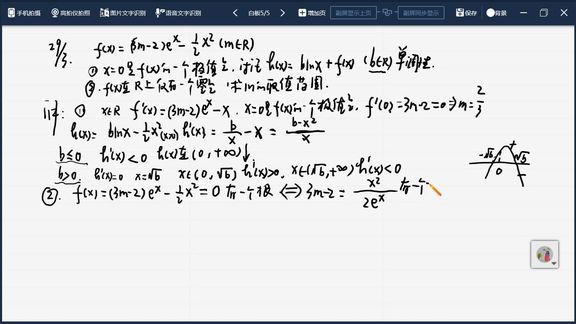 手机拍摄 高拍仪拍照 图片文字识别 语音文字识别 白板5/5 增加页 副屏显示上一页 副屏显示下一页 同步副屏显示 保存 背景
29/3. f(x)=(3m-2)e^x-1/2x² (m∈R)
① x=0是f(x)的一个极值点, 讨论h(x)=blnx+f(x) (b∈R) 单调性.
② f(x)在R上仅有一个零点 求m的取值范围.
① x∈R f'(x)=(3m-2)e^x-x. x=0是f(x)的一个极值点, f'(0)=3m-2=0⇒m=2/3
h(x)=blnx-1/2x² (x>0) h'(x)=b/x-x=(b-x²)/x
b≤0 h'(x)<0 h(x)在(0,+∞)↓
b>0. h'(x)=0 x=√b x∈(0,√b) h'(x)>0, x∈(√b,+∞) h'(x)<0
-√b 0 √b + -
②. f(x)=(3m-2)e^x-1/2x²=0 有一个根 ⇔ 3m-2=x²/2e^x 有一个